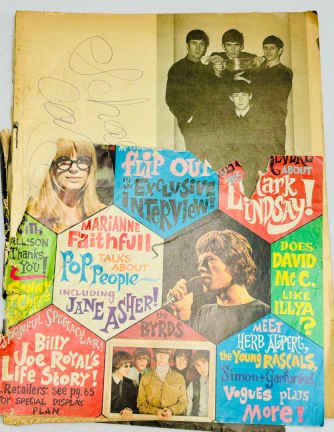 flip out
EXCLUSIVE
INTERVIEW!
ABOUT
LINDSAY!
ALLISON
Thanks
You!
MARIANNE
Faithfull
TALKS
ABOUT
POP People—
INCLUDING
JANE ASHER!
DOES
DAVID
McC.
LIKE
ILLYA?
THE
BYRDS
Billy
Joe Royal's
Life Story!
Retailers: see pg. 65
for SPECIAL DISPLAY
PLAN
MEET
HERB ALPERT,
the Young RASCALS,
Simon & Garfunkel
VOGUES plus
More!